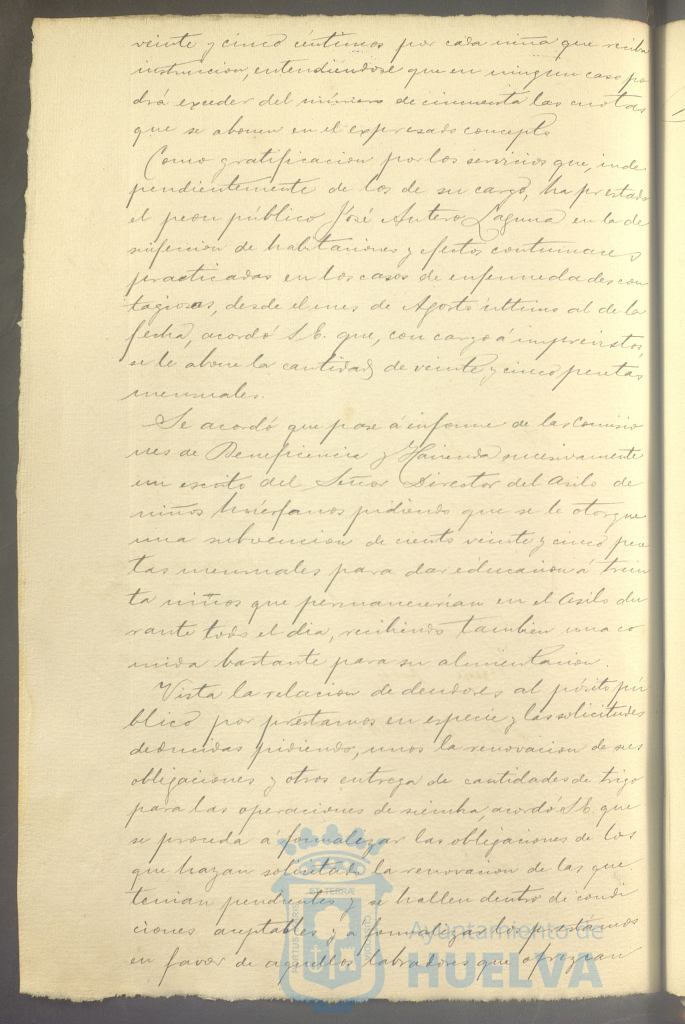 veinte y cinco céntimos por cada niña que reciba
instruccion, entendiéndose que en ningun caso po
drá exceder del número de cincuenta las cuotas
que se abonen en el expresado concepto
Como gratificacion por los servicios que, inde
pendientemente de los de su cargo, ha prestado
el peon público José Antero Laguna en la de
sinfeccion de habitaciones y efectos contumaces
practicadas en los casos de enfermedades con
tagiosas, desde el mes de Agosto último al de la
fecha, acordó S. E. que, con cargo á imprevistos,
se le abone la cantidad de veinte y cinco pesetas
mensuales.
Se acordó que pase á informe de las Comisio
nes de Beneficencia y Hacienda sucesivamente
un escrito del Señor Director del Asilo de
niños huérfanos pidiendo que se le otorgue
una subvencion de ciento veinte y cinco pese
tas mensuales para dar educacion á trein
ta niños que permanecerian en el Asilo du
rante todo el dia, recibiendo tambien una co
mida bastante para su alimentacion.
Vista la relacion de deudores al pósito pú
blico por préstamos en especie y las solicitudes
deducidas pidiendo, unos la renovacion de sus
obligaciones y otros entrega de cantidades de trigo
para las operaciones de siembra, acordó S. E. que
se proceda á formalizar las obligaciones de los
que hayan solicitado la renovacion de las que
tenian pendientes y se hallen dentro de condi
ciones aceptables y á formalizar los préstamos
en favor de aquellos labradores que ofrezcan
Ayuntamiento de
HUELVA